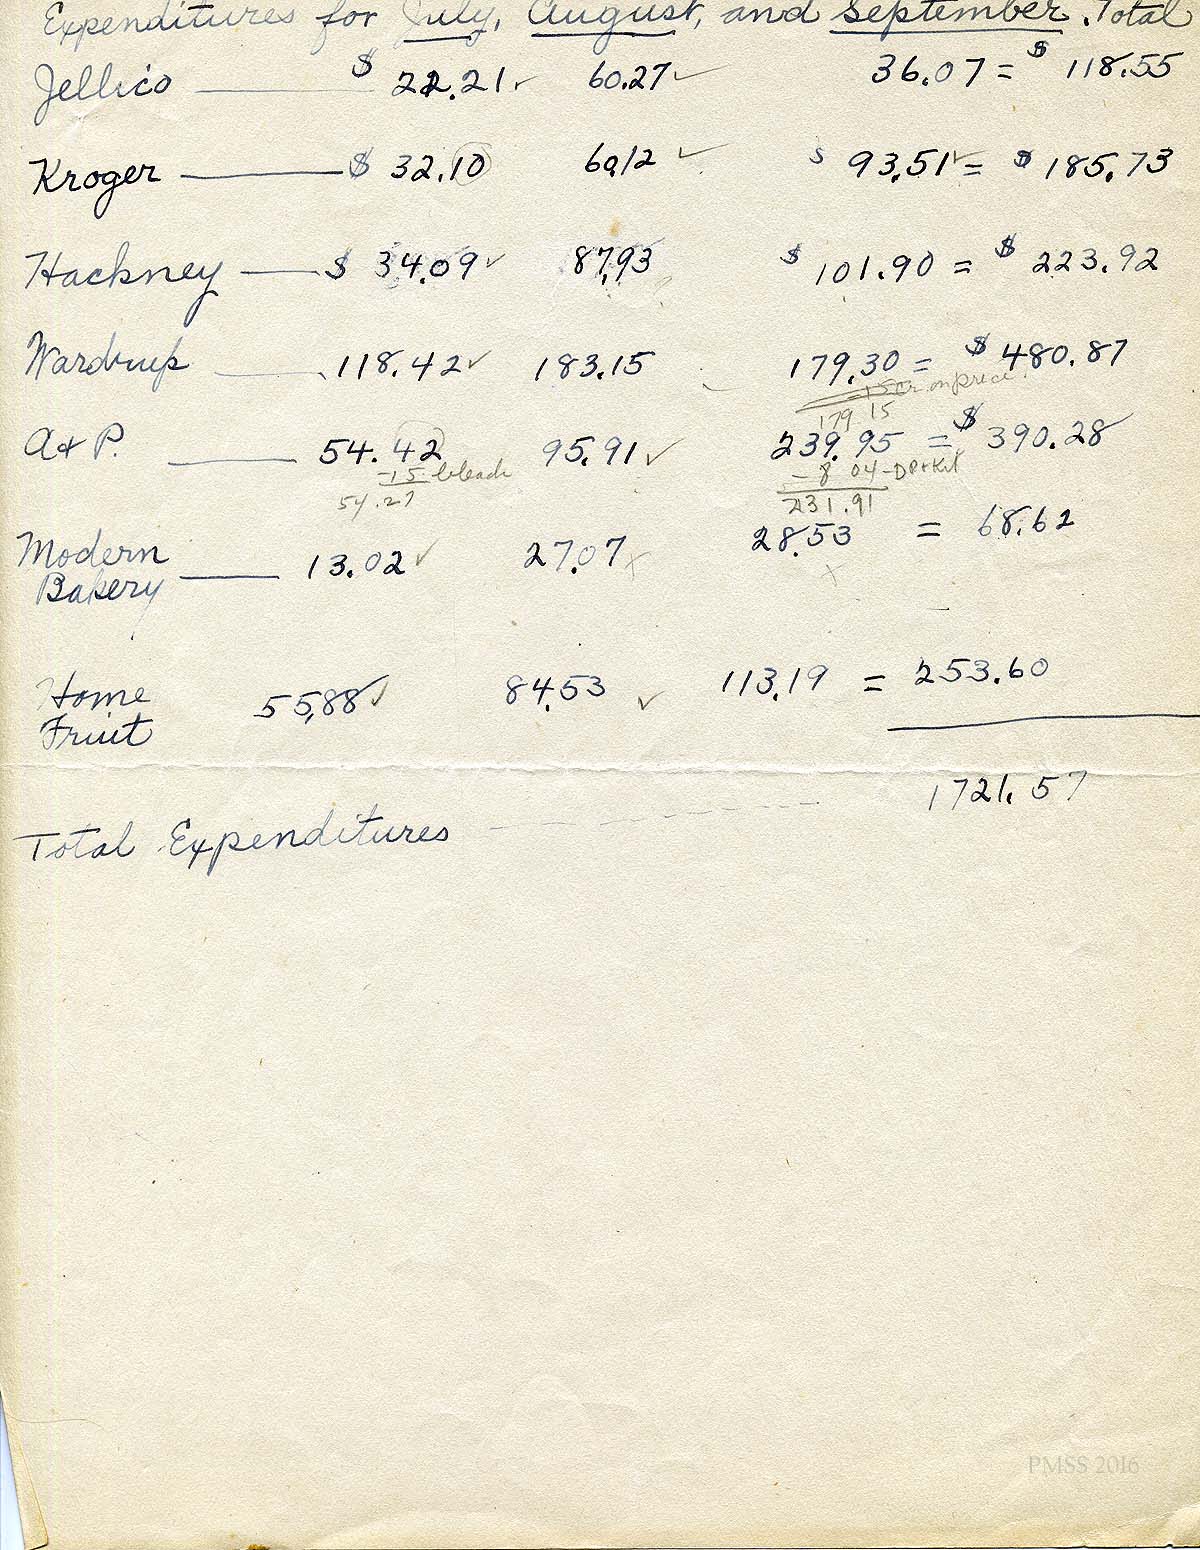 Expenditures for July, August, and September. Total
Jellico $ 22.21 ✓ 60.27 ✓ 36.07 = $ 118.55
Kroger $ 32.10 60.12 ✓ $ 93.51 ✓ = $ 185.73
Hackney $ 34.09 ✓ 87.93 $ 101.90 = $ 223.92
Wardrup 118.42 ✓ 183.15 179.30 = $ 480.87
15 cr. on price
179 15
A & P. 54.42 95.91 ✓ 239.95 = $ 390.28
-15 bleach - 8 04 -
54.27 231.91
Modern 13.02 ✓ 27.07 x 28.53 = 68.62
Bakery x
Home 55.88 ✓ 84.53 ✓ 113.19 = 253.60
Fruit
1721.57
Total Expenditures
PMSS 2016